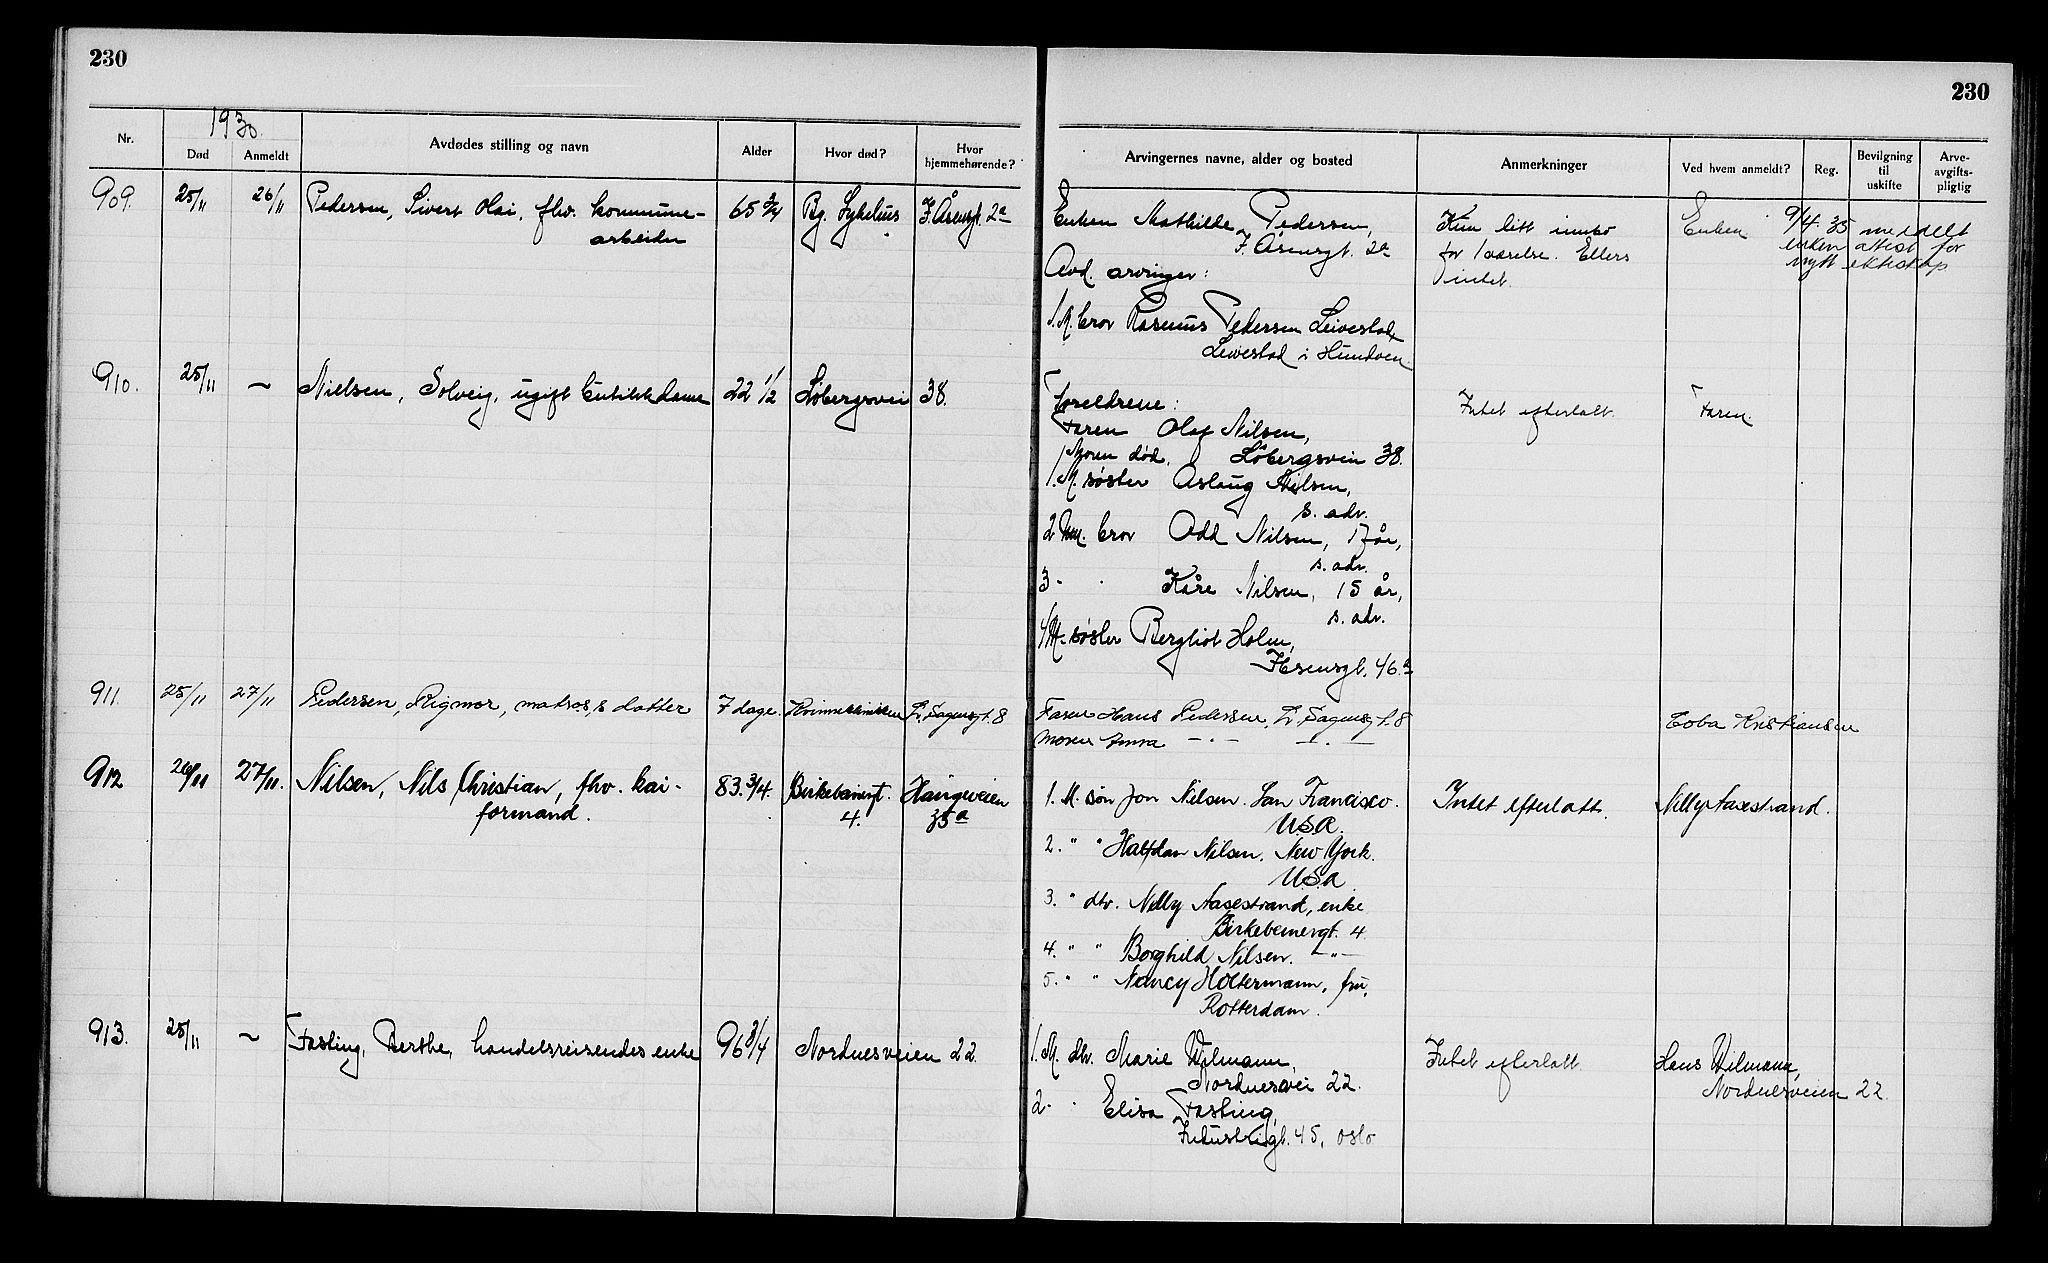 230
230
1930.
Nr.
Død
Anmeldt
Avdødes stilling og navn
Alder
Hvor død?
Hvor hjemmehørende?
Arvingernes navne, alder og bosted
Anmerkninger
Ved hvem anmeldt?
Reg.
Bevilgning til uskifte
Arve-avgifts-pligtig
909. 25/11 26/11 Pedersen, Sivert Olai, fhv. kommune- 65 3/4 Bg. Sykehus J. Åsensgt. 2a
arbeider
Enken Mathilde Pedersen,
J. Åsensgt. 2a
Avd. arvinger:
1. M. bror Rasmus Pedersen Leivestad,
Leivestad i
Kun litt innbo
for 1 værelse. Ellers
intet.
Enken
9/4.35 meddelt
enken attest for
nytt ekteskap
910. 25/11 ~ Nielsen, Solveig, ugift butikkdame 22 1/2 Løbergsvei 38.
Foreldrene:
Faren Olaf Nilsen,
Moren død. Løbergsvein 38.
1. M. søster Aslaug Nilsen,
s. adr.
2 Um. bror Odd Nilsen, 17 år,
s. adr.
3 - - Kåre Nilsen, 15 år,
s. adr.
4 M. søster Bergliot Holm,
46a
Intet efterlatt.
Faren.
911. 25/11 27/11 Pedersen, Rigmor, matros,s datter 7 dage. Kvinneklinikken 8
Faren Hans Pedersen, 8
Moren Anna -"- -"-
Toba Kristiansen
912 26/11 27/11. Nilsen, Nils Christian, fhv. kai- 83.3/4. Birkebeinergt. Haugeveien
formand. 4. 35a
1. M. søn Jon Nilsen. San Francisco.
U.S.A.
2. " " Halfdan Nilsen. New York.
U.S.A.
3. " dtr. Nelly Aasestrand, enke
Birkebeinergt. 4.
4. " " Borghild Nilsen. -"-
5. " " Nancy Holtermann, fru,
Rotterdam.
Intet efterlatt.
Nelly Aasestrand.
913. 25/11 ~ Fasting, Berthe, handelsreisendes enke 96 3/4 Nordnesveien 22.
1. M. dtr. Marie Wilmann,
Nordnesvei 22.
2 - - Elisa Fasting,
Industrigt. 45, Oslo.
Intet efterlatt.
Hans Wilmann,
Nordnesveien 22.